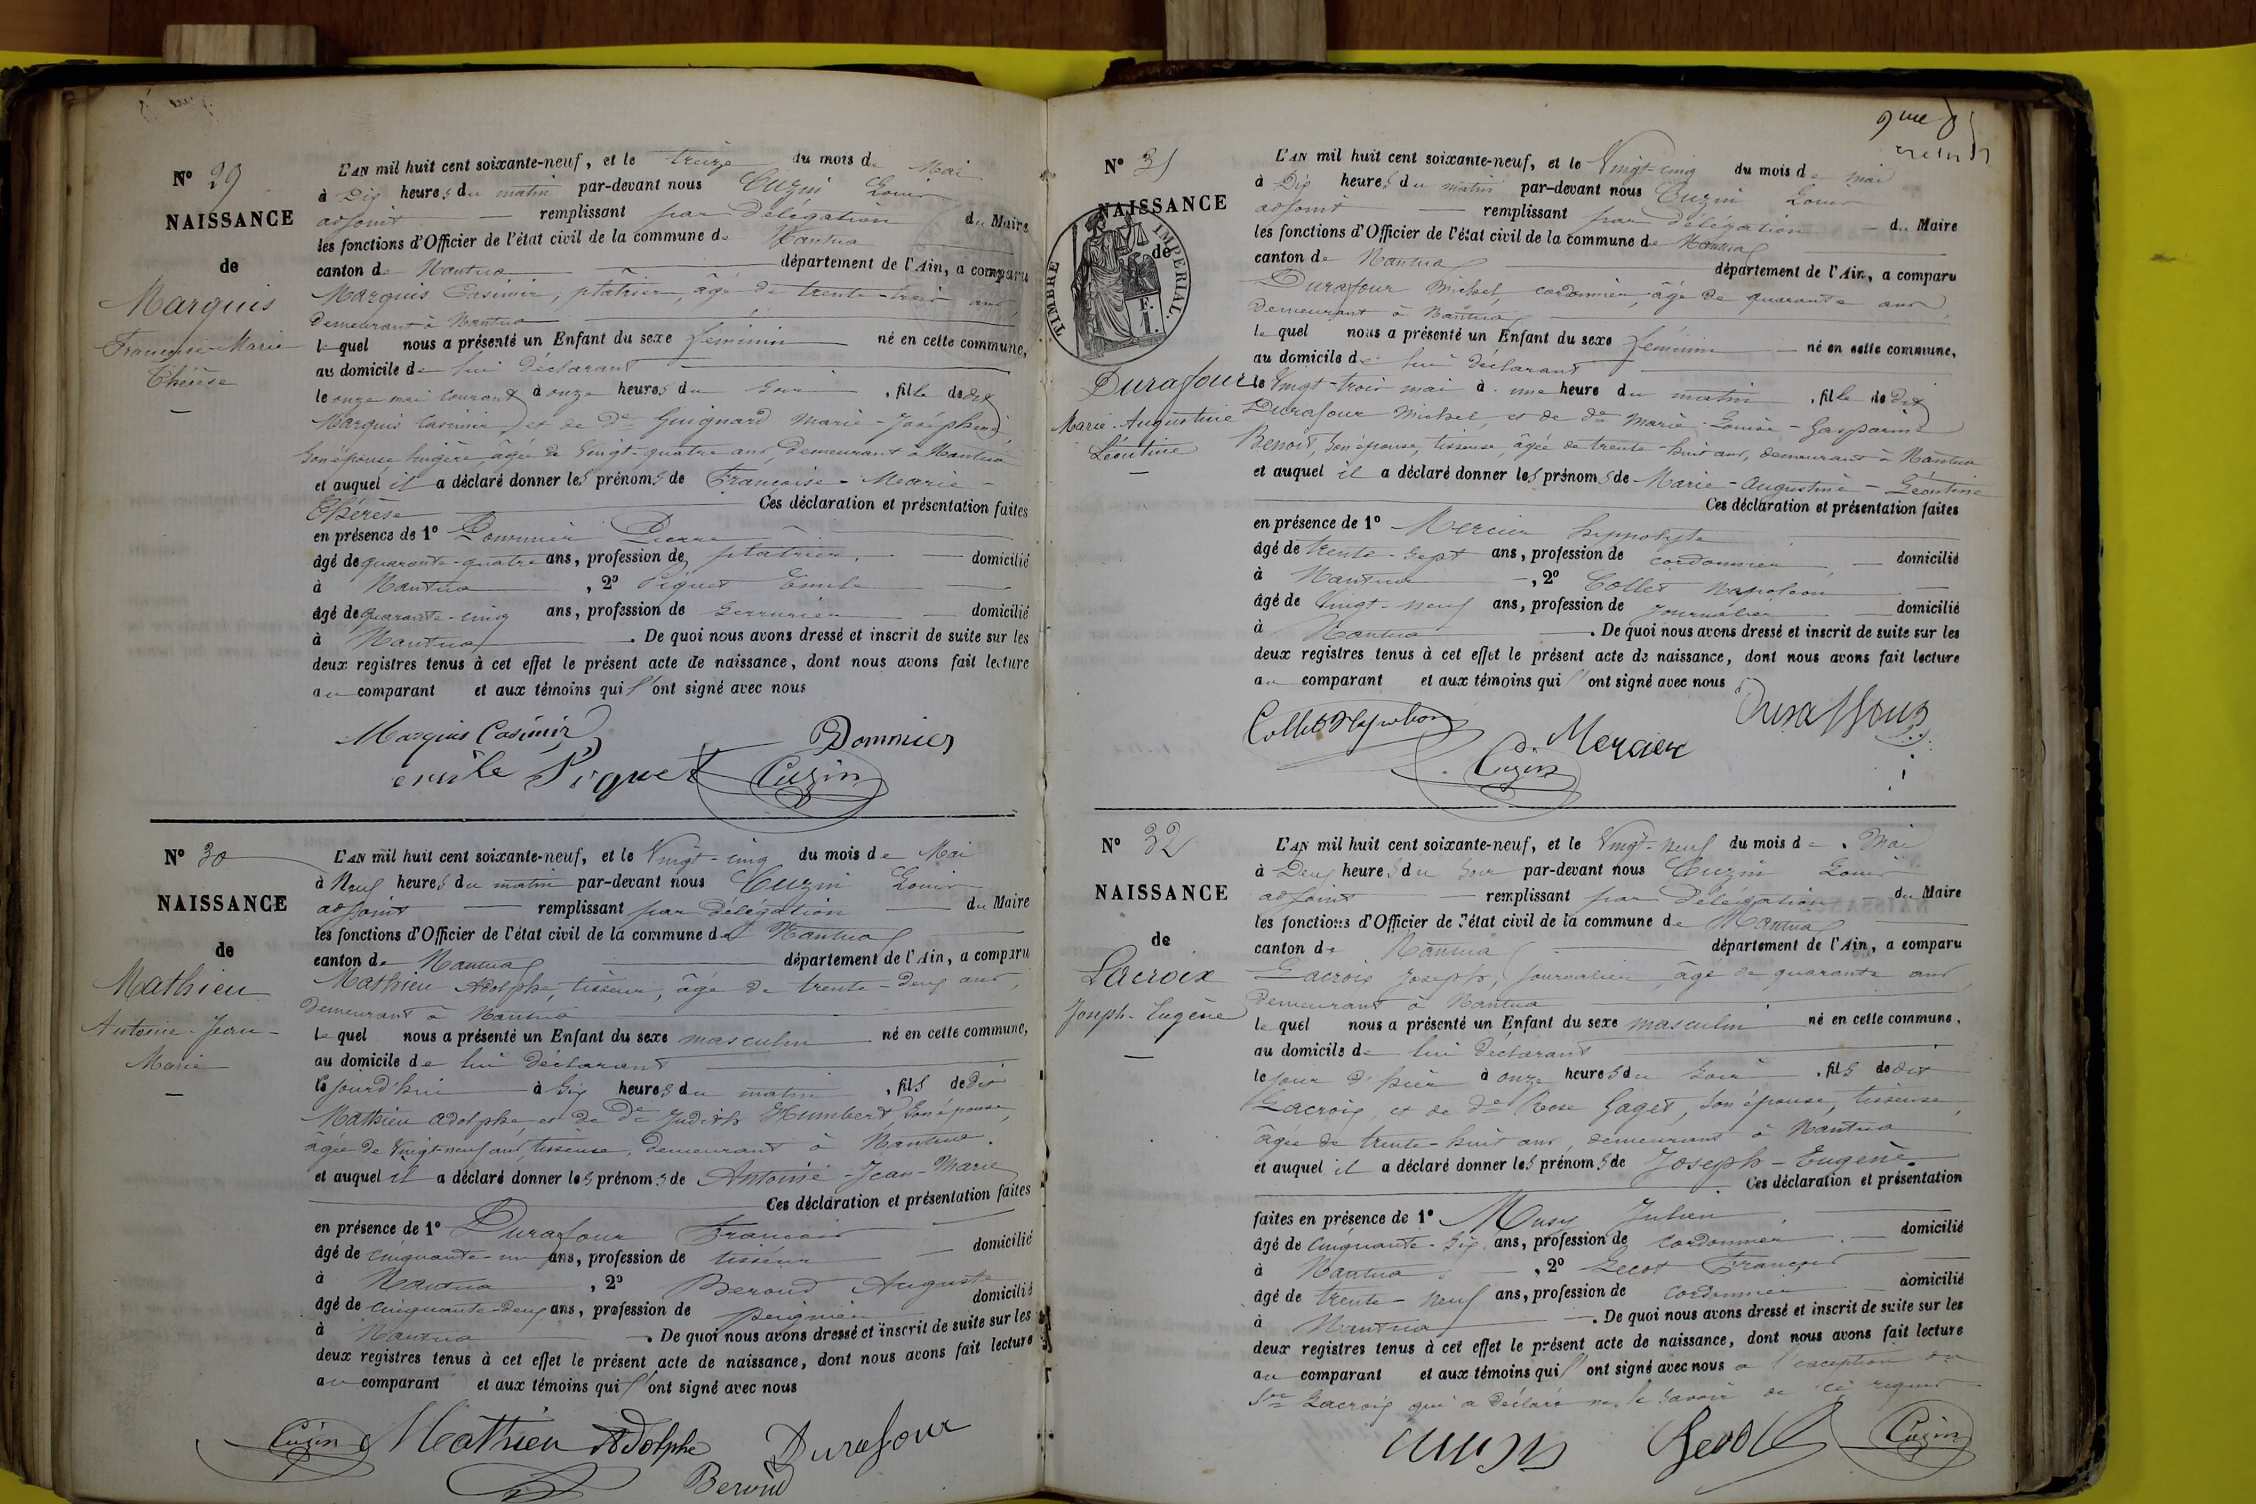 N° 29
NAISSANCE
de
Marquis
Françoise-Marie
Thérèse
L'AN mil huit cent soixante-neuf, et le treize du mois de Mai
à Dix heures du matin par-devant nous Cuzin Louis
adjoint remplissant par délégation du Maire
les fonctions d'Officier de l'état civil de la commune de Nantua
canton de Nantua département de l'Ain, a comparu
Marquis Casimir, plâtrier, âgé de trente-trois ans
demeurant à Nantua
lequel nous a présenté un Enfant du sexe féminin né en cette commune,
au domicile de lui déclarant
le onze mai courant à onze heures du soir, fille dudit
Marquis Casimir, et de De Guignard Marie-Joséphine
son épouse lingère, âgée de Vingt-quatre ans, demeurant à Nantua
et auquel il a déclaré donner les prénoms de Françoise-Marie-
Thérèse Ces déclaration et présentation faites
en présence de 1° Pierre
âgé de quarante-quatre ans, profession de plâtrier, domicilié
à Nantua, 2° Piquet Emile
âgé de quarante-cinq ans, profession de Serrurier domicilié
à Nantua. De quoi nous avons dressé et inscrit de suite sur les
deux registres tenus à cet effet le présent acte de naissance, dont nous avons fait lecture
au comparant et aux témoins qui l'ont signé avec nous
Marquis Casimir
emile Piquet Cuzin
N° 30
NAISSANCE
de
Mathieu
Antoine-Jean-
Marie
L'AN mil huit cent soixante-neuf, et le Vingt-cinq du mois de Mai
à Neuf heures du matin par-devant nous Cuzin Louis
adjoint remplissant par délégation du Maire
les fonctions d'Officier de l'état civil de la commune de Nantua
canton de Nantua département de l'Ain, a comparu
Mathieu Adolphe, tisseur, âgé de trente-deux ans,
demeurant à Nantua
lequel nous a présenté un Enfant du sexe masculin né en cette commune,
au domicile de lui déclarant
le jourd'hui à Six heures du matin, fils dudit
Mathieu Adolphe, et de De Judith Humbert, son épouse,
âgée de Vingt-neuf ans, tisseuse, demeurant à Nantua.
et auquel il a déclaré donner les prénoms de Antoine-Jean-Marie
Ces déclaration et présentation faites
en présence de 1° Durafour François
âgé de cinquante-un ans, profession de tisseur domicilié
à Nantua, 2° Beroud Auguste
âgé de cinquante-deux ans, profession de peignier domicilié
à Nantua. De quoi nous avons dressé et inscrit de suite sur les
deux registres tenus à cet effet le présent acte de naissance, dont nous avons fait lecture
au comparant et aux témoins qui l'ont signé avec nous
Cuzin Mathieu Adolphe Durafour
Beroud
N° 31
NAISSANCE
de
TIMBRE IMPERIAL.
E. 1.
Durafour
Marie-Augustine
Léontine
L'AN mil huit cent soixante-neuf, et le Vingt-cinq du mois de mai
à Dix heures du matin par-devant nous Cuzin Louis
adjoint remplissant par délégation du Maire
les fonctions d'Officier de l'état civil de la commune de Nantua
canton de Nantua département de l'Ain, a comparu
Durafour Michel, cordonnier, âgé de quarante ans
demeurant à Nantua
lequel nous a présenté un Enfant du sexe féminin né en cette commune,
au domicile de lui déclarant
le Vingt-trois mai à une heure du matin, fille dudit
Durafour Michel, et de de Marie-Louise-Gasparine
Benoit, son épouse, tisseuse, âgée de trente-huit ans, demeurant à Nantua
et auquel il a déclaré donner les prénoms de Marie-Augustine-Léontine
Ces déclaration et présentation faites
en présence de 1° Mercier hippolyte
âgé de trente-sept ans, profession de cordonnier, domicilié
à Nantua, 2° Collet Napoléon
âgé de Vingt-neuf ans, profession de journalier domicilié
à Nantua. De quoi nous avons dressé et inscrit de suite sur les
deux registres tenus à cet effet le présent acte de naissance, dont nous avons fait lecture
au comparant et aux témoins qui l'ont signé avec nous
Collet Napoleon Mercier Duraffour
Cuzin
N° 32
NAISSANCE
de
Lacroix
Joseph-Eugène
L'AN mil huit cent soixante-neuf, et le Vingt-neuf du mois de Mai
à Deux heures du soir par-devant nous Cuzin Louis
adjoint remplissant par délégation du Maire
les fonctions d'Officier de l'état civil de la commune de Nantua
canton de Nantua département de l'Ain, a comparu
Lacroix Joseph, journalier, âgé de quarante ans
demeurant à Nantua
lequel nous a présenté un Enfant du sexe masculin né en cette commune,
au domicile de lui déclarant
le jour d'hier à onze heures du soir, fils dudit
Lacroix, et de de Rose Gaget, son épouse, tisseuse,
âgée de trente-huit ans, demeurant à Nantua
et auquel il a déclaré donner les prénoms de Joseph-Eugène.
Ces déclaration et présentation
faites en présence de 1° Musy Julien
âgé de cinquante-six ans, profession de cordonnier domicilié
à Nantua, 2° François
âgé de trente-neuf ans, profession de cordonnier domicilié
à Nantua. De quoi nous avons dressé et inscrit de suite sur les
deux registres tenus à cet effet le présent acte de naissance, dont nous avons fait lecture
au comparant et aux témoins qui l'ont signé avec nous à l'exception du
Sr Lacroix qui a déclaré ne le savoir de ce requis
Cuzin